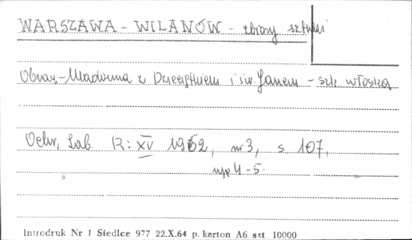 WARSZAWA - WILANÓW - zbiory sztuki
Obraz - Madonna z Dzieciątkiem i św. Janem - szk. włoska
Ochr. Zab. R: XV 1962, nr 3, s. 107,
ryc. 4-5.
Introdruk Nr 1 Siedlce 977 22.X.64 p. karton A6 szt. 10000